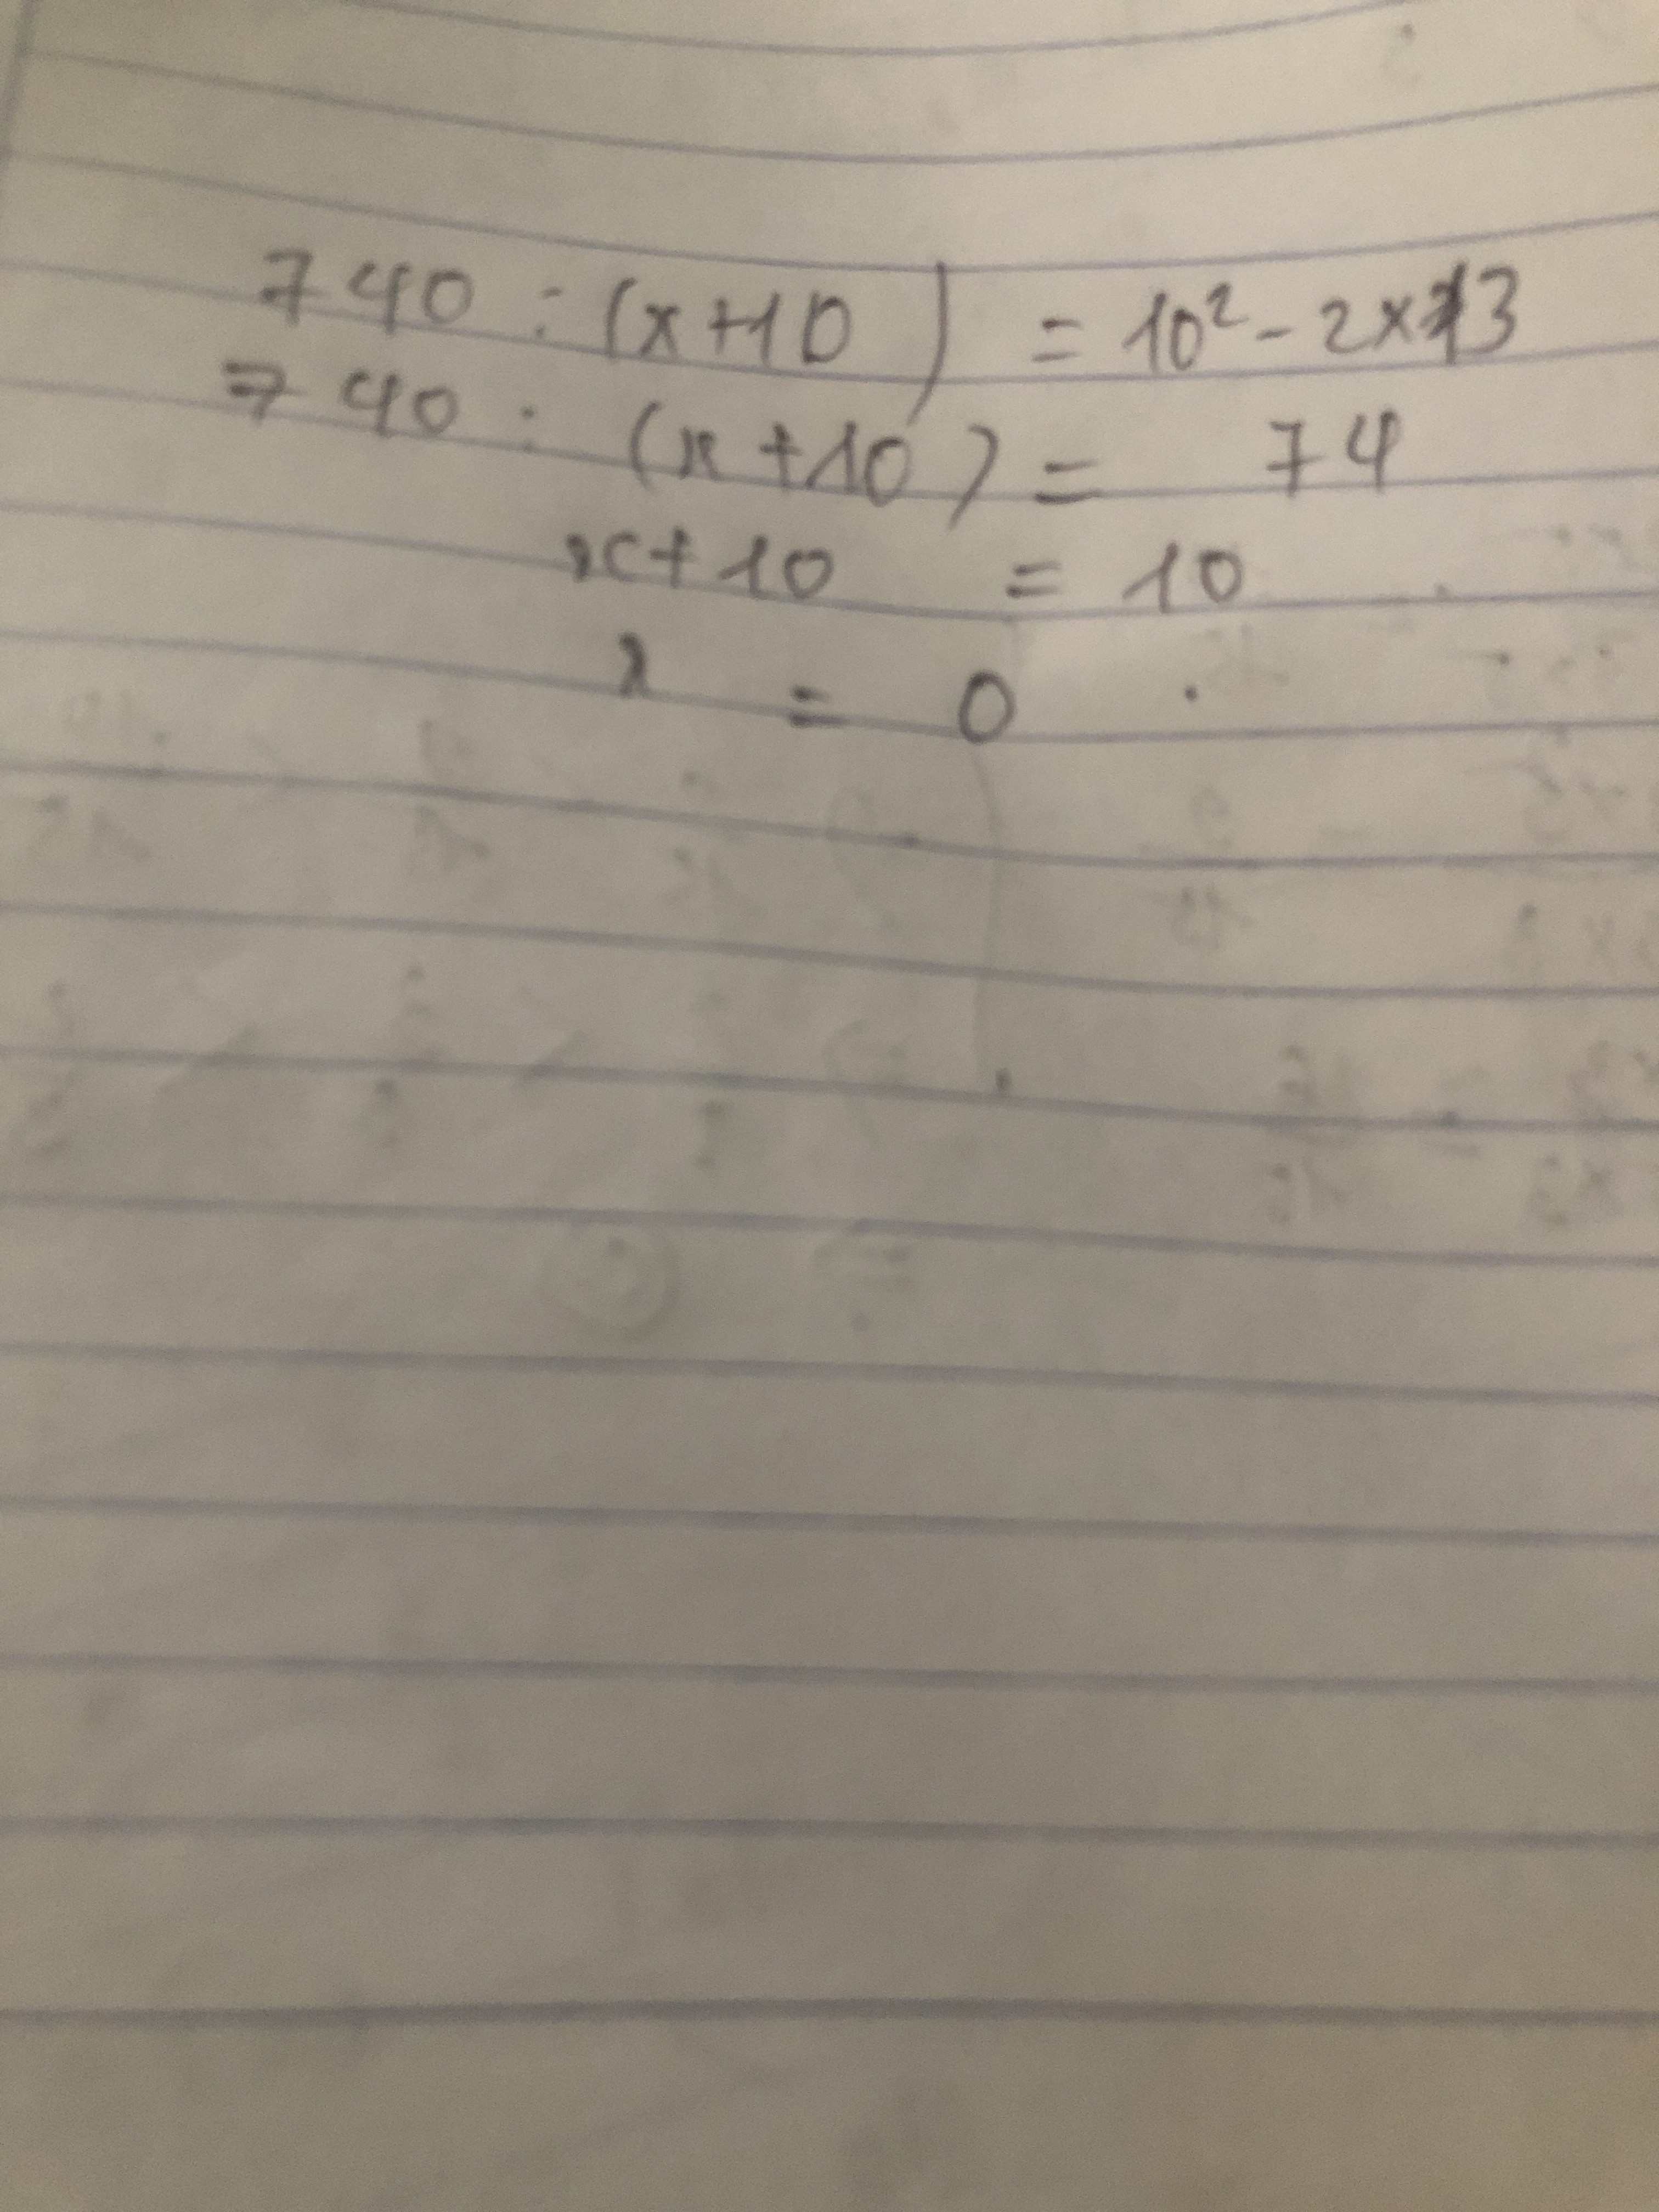 740 : (x+10) = 10² - 2x13
740 : (x+10) = 74
x+10 = 10
x = 0